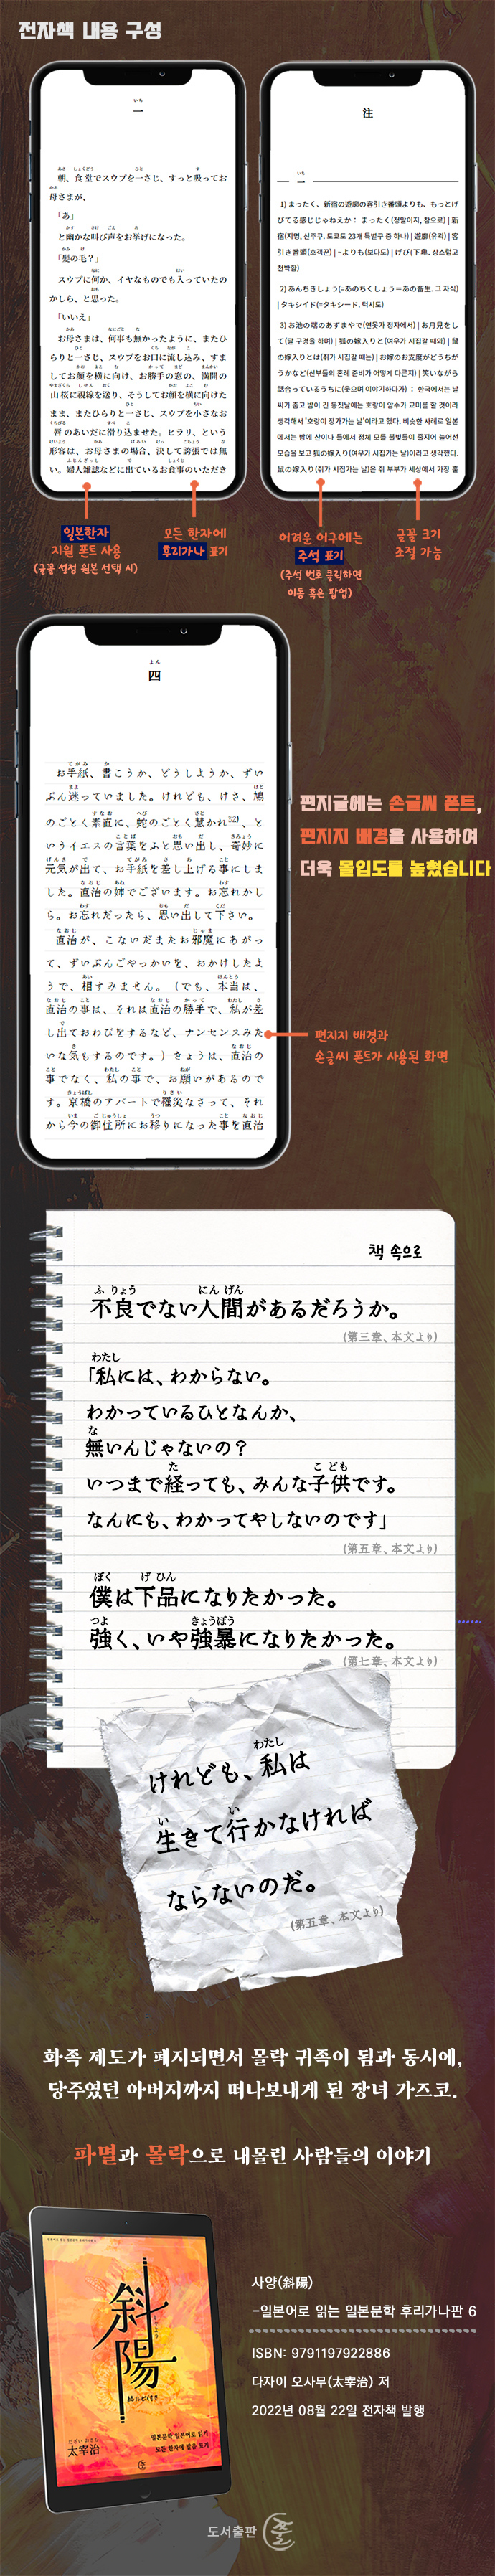 전자책 내용 구성
いち
一
あさ しょくどう ひと す
朝、食堂でスウプを一さじ、すっと吸ってお
かあ
母さまが、
「あ」
かす さけ ごえ あ
と幽かな叫び声をお挙げになった。
かみ け
「髪の毛？」
なに はい
スウプに何か、イヤなものでも入っていたの
おも
かしら、と思った。
「いいえ」
かあ なにごと な
お母さまは、何事も無かったように、またひ
ひと くち なが こ
らりと一さじ、スウプをお口に流し込み、すま
かお よこ む かって まど まんかい
してお顔を横に向け、お勝手の窓の、満開の
やまざくら しせん おく かお よこ む
山桜に視線を送り、そうしてお顔を横に向けた
ひと ちい
まま、またひらりと一さじ、スウプを小さなお
くちびる すべ こ
唇のあいだに滑り込ませた。ヒラリ、という
けいよう かあ ばあい けっ こちょう な
形容は、お母さまの場合、決して誇張では無
ふじんざっし で しょくじ
い。婦人雑誌などに出ているお食事のいただき
注
いち
一
1) まったく、新宿の遊廓の客引き番頭よりも、もっとげ
びてる感じじゃねえか： まったく(정말이지, 참으로) | 新
宿(지명, 신주쿠. 도쿄도 23개 특별구 중 하나) | 遊廓(유곽) | 客
引き番頭(호객꾼) | ~よりも(보다도) | げび(下卑. 상스럽고
천박함)
2) あんちきしょう(=あのちくしょう=あの畜生. 그 자식)
| タキシイド(=タキシード. 턱시도)
3) お池の端のあずまやで(연못가 정자에서) | お月見をし
て(달 구경을 하며) | 狐の嫁入りと(여우가 시집갈 때와) | 鼠
の嫁入りとは(쥐가 시집갈 때는) | お嫁のお支度がどうちが
うかなど(신부들의 혼례 준비가 어떻게 다른지) | 笑いながら
話合っているうちに(웃으며 이야기하다가) ： 한국에서는 날
씨가 춥고 밤이 긴 동짓날에는 호랑이 암수가 교미를 할 것이라
생각해서 '호랑이 장가가는 날'이라고 했다. 비슷한 사례로 일본
에서는 밤에 산이나 들에서 정체 모를 불빛들이 줄지어 늘어선
모습을 보고 狐の嫁入り(여우가 시집가는 날)이라고 생각했다.
鼠の嫁入り(쥐가 시집가는 날)은 쥐 부부가 세상에서 가장 훌
일본한자
지원 폰트 사용
(글꼴 설정 원본 선택 시)
모든 한자에
후리가나 표기
어려운 어구에는
주석 표기
(주석 번호 클릭하면
이동 혹은 팝업)
글꼴 크기
조절 가능
よん
四
てがみ か
お手紙、書こうか、どうしようか、ずい
まよ はと
ぶん迷っていました。けれども、けさ、鳩
すなお へび さと
のごとく素直に、蛇のごとく慧かれ32)、と
ことば おも だ きみょう
いうイエスの言葉をふと思い出し、奇妙に
げんき で てがみ さ あ こと
元気が出て、お手紙を差し上げる事にしま
なおじ あね わす
した。直治の姉でございます。お忘れかし
わす おも だ くだ
ら。お忘れだったら、思い出して下さい。
なおじ じゃま
直治が、こないだまたお邪魔にあがっ
て、ずいぶんごやっかいを、おかけしたよ
あい ほんとう
うで、相すみません。（でも、本当は、
なおじ こと なおじ かって わたし さ
直治の事は、それは直治の勝手で、私が差
で
し出ておわびをするなど、ナンセンスみた
き なおじ
いな気もするのです。）きょうは、直治の
こと わたし こと ねが
事でなく、私の事で、お願いがあるので
きょうばし りさい
す。京橋のアパートで罹災なさって、それ
いま ごじゅうしょ うつ こと なおじ
から今の御住所にお移りになった事を直治
편지글에는 손글씨 폰트,
편지지 배경을 사용하여
더욱 몰입도를 높혔습니다
편지지 배경과
손글씨 폰트가 사용된 화면
책 속으로
ふ りょう にん げん
不良でない人間があるだろうか。
(第三章、本文より)
わたし
「私には、わからない。
わかっているひとなんか、
な
無いんじゃないの？
た こ ども
いつまで経っても、みんな子供です。
なんにも、わかってやしないのです」
(第五章、本文より)
ぼく げ ひん
僕は下品になりたかった。
つよ きょうぼう
強く、いや強暴になりたかった。
(第七章、本文より)
わたし
けれども、私は
い い
生きて行かなければ
ならないのだ。
(第五章、本文より)
화족 제도가 폐지되면서 몰락 귀족이 됨과 동시에,
당주였던 아버지까지 떠나보내게 된 장녀 가즈코.
파멸과 몰락으로 내몰린 사람들의 이야기
斜陽
しゃよう
太宰治
だざい おさむ
일본문학 일본어로 읽기
모든 한자에 발음 표기
사양(斜陽)
-일본어로 읽는 일본문학 후리가나판 6
ISBN: 9791197922886
다자이 오사무(太宰治) 저
2022년 08월 22일 전자책 발행
도서출판 쫄